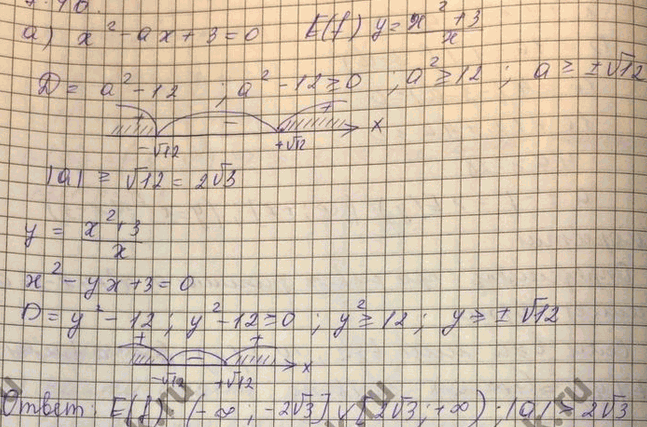 а) x² - ax + 3 = 0 E(f) y = x²+3 / x
D = a² - 12 ; a² - 12 ≥ 0 ; a² ≥ 12 ; a ≥ ±√12
+ - + x
-√12 +√12
|a| ≥ √12 = 2√3
y = x²+3 / x
x² - yx + 3 = 0
D = y² - 12 ; y² - 12 ≥ 0 ; y² ≥ 12 ; y ≥ ±√12
+ - + x
-√12 +√12
Ответ: E(f) (-∞ ; -2√3] ∨ [2√3 ; +∞) ; |a| ≥ 2√3